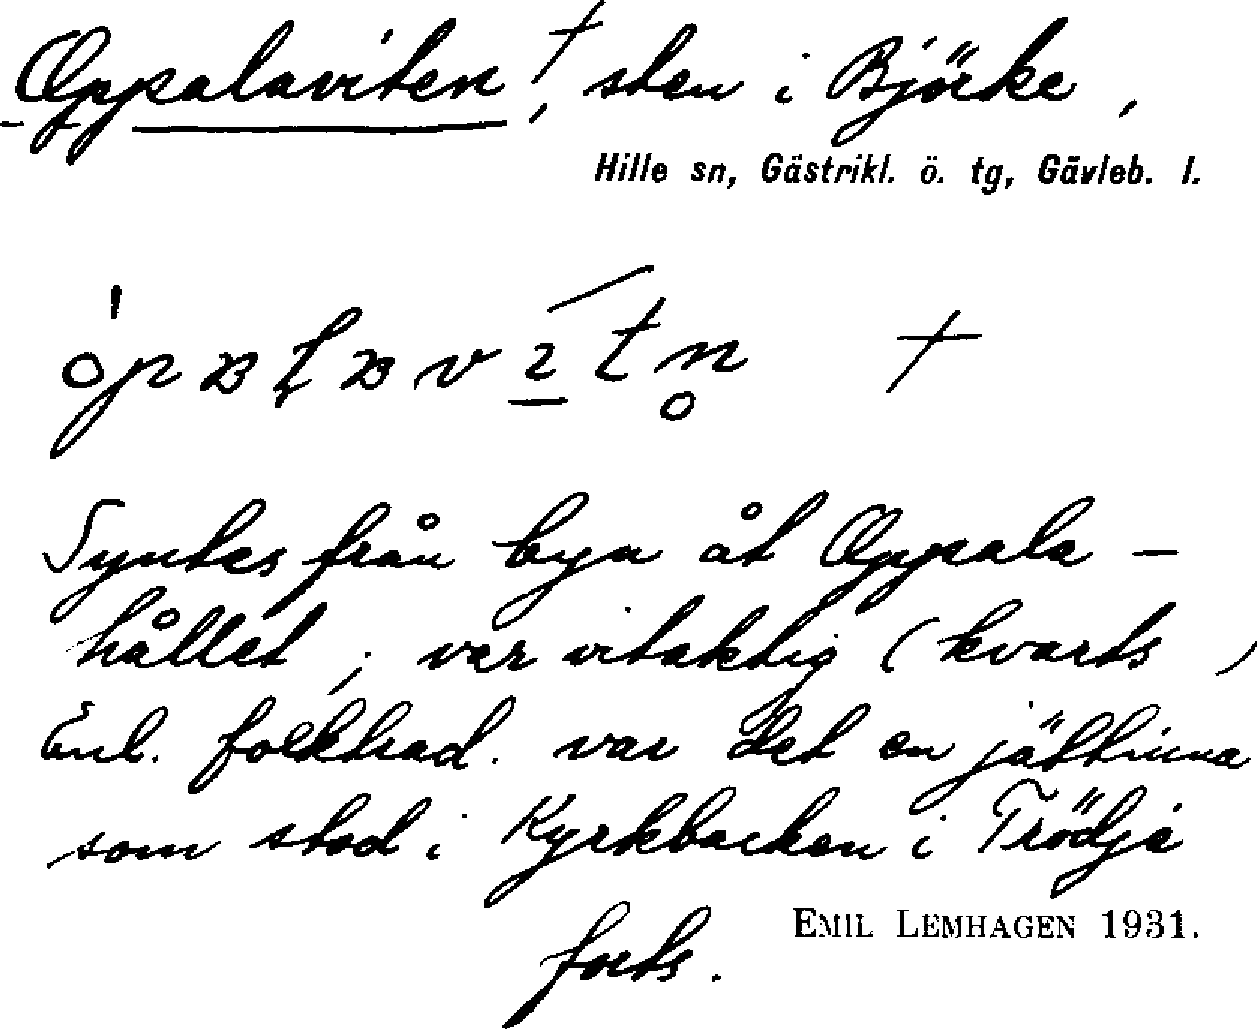 Oppalaviten †, sten i Björke,
Hille sn, Gästrikl. ö. tg, Gävleb. l.
Syntes från byn åt Oppala-
hållet, var vitaktig (kvarts)
Enl. folktrad. var det en jättinna
som stod i Kyrkbacken i Trödje
EMIL LEMHAGEN 1931.
forts.